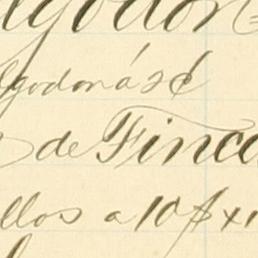 lgodon
lgodonásé
de Finca
llos a 10 $ x